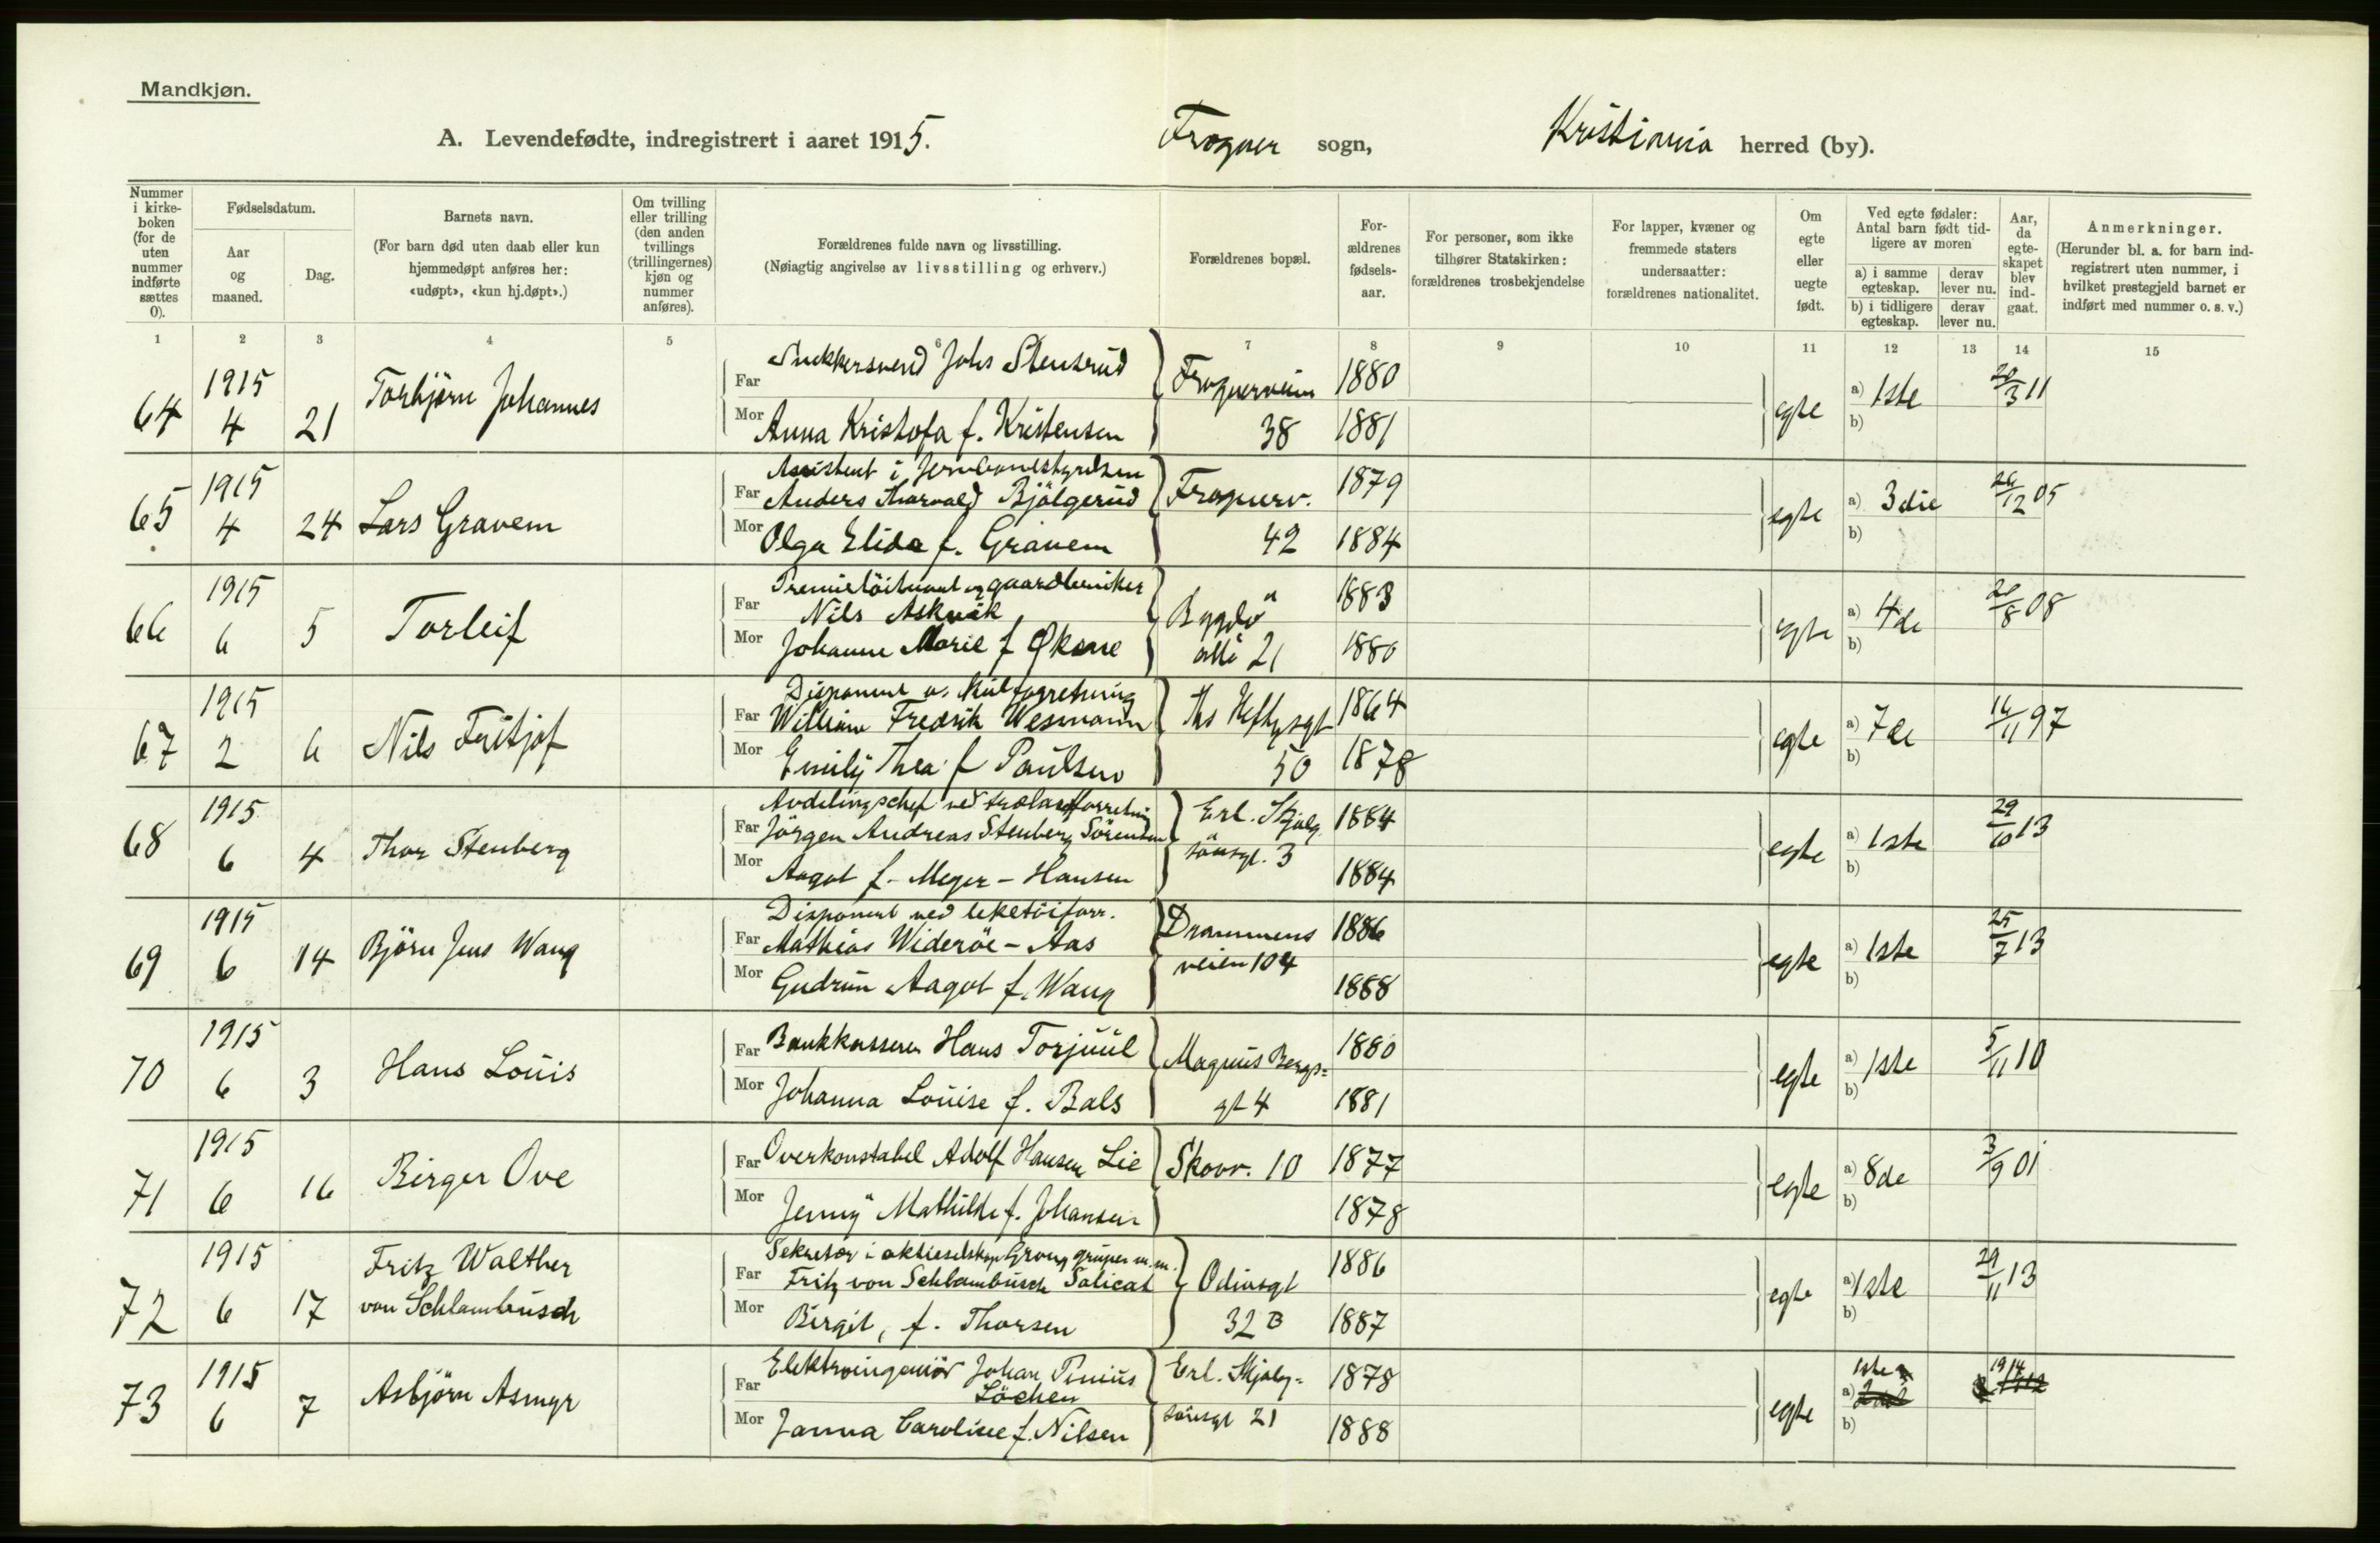 Mandkjøn.
A. Levendefødte, indregistrert i aaret 1915. Frogner sogn, Kristiania herred (by).
Nummer i kirkeboken (for de uten nummer indførte sættes 0).
Fødselsdatum.
Aar og maaned.
Dag.
Barnets navn.
(For barn død uten daab eller kun hjemmedøpt anføres her: «udøpt», «kun hj.døpt».)
Om tvilling eller trilling (den anden tvillings (trillingernes) kjøn og nummer anføres).
Forældrenes fulde navn og livsstilling.
(Nøiagtig angivelse av livsstilling og erhverv.)
Forældrenes bopæl.
For-ældrenes fødsels-aar.
For personer, som ikke tilhører Statskirken: forældrenes trosbekjendelse
For lapper, kvæner og fremmede staters undersaatter: forældrenes nationalitet.
Om egte eller uegte født.
Ved egte fødsler: Antal barn født tid-ligere av moren
a) i samme egteskap.
derav lever nu.
b) i tidligere egteskap.
derav lever nu.
Aar, da egte-skapet blev ind-gaat.
Anmerkninger.
(Herunder bl. a. for barn ind-registrert uten nummer, i hvilket prestegjeld barnet er indført med nummer o. s. v.)
1 2 3 4 5 6 7 8 9 10 11 12 13 14 15
64 1915 4 21 Torbjørn Johannes
Far Snekkersvend Johs Stensrud Frognerveien 1880
Mor Anna Kristofa f. Kristensen 38 1881
egte a) 1ste b) 20/3 11
65 1915 4 24 Lars Gravem
Assistent i Jernbanestyrelsen
Far Anders Thorvald Bjölgerud Frognerv. 1879
Mor Olga Elida f. Gravem 42 1884
egte a) 3die b) 26/12 05
66 1915 6 5 Torleif
Premierlöitnant og
Far Nils Askvik Bygdö 1883
Mor Johanne Marie f Øksne allé 21 1880
egte a) 4de b) 20/8 08
67 1915 2 6 Nils Fritjof
Disponent
Far William Fredrik Wesmann Ths Heftysgt 1864
Mor Emily Thea f Paulsen 50 1878
egte a) 7de b) 16/11 97
68 1915 6 4 Thor Stenberg
Avdelingschef ved trælastforretning
Far Jörgen Andreas Stenberg Sörensen Erl. Skjalg 1884
Mor Aagot f. Meyer-Hansen sönsgt. 3 1884
egte a) 1ste b) 29/10 13
69 1915 6 14 Björn Jens Wang
Disponent ved leketöiforr.
Far Mathias Wideröe-Aas Drammens 1886
Mor Gudrun Aagot f. Wang veien 104 1888
egte a) 1ste b) 25/7 13
70 1915 6 3 Hans Louis
Far Bankkasserer Hans Torjuul Magnus Bergs= 1880
Mor Johanna Louise f. Bals gt 4 1881
egte a) 1ste b) 5/11 10
71 1915 6 16 Birger Ove
Far Overkonstabel Adolf Hansen Lie Skovv. 10 1877
Mor Jenny Mathilde f. Johansen 1878
egte a) 8de b) 3/9 01
72 1915 6 17 Fritz Walther
von Schlambusch
Sekretær i aktieselskap Grong gruper m.m.
Far Fritz von Schlambusch Salicat Odinsgt 1886
Mor Birgit, f. Thorsen 32 B 1887
egte a) 1ste b) 29/11 13
73 1915 6 7 Asbjörn Asmyr
Far Elektroingeniör Johan Pinius Löchen Erl. Skjalg= 1878
Mor Janna Caroline f. Nilsen sönsgt 21 1888
egte a) 1ste b) 1914